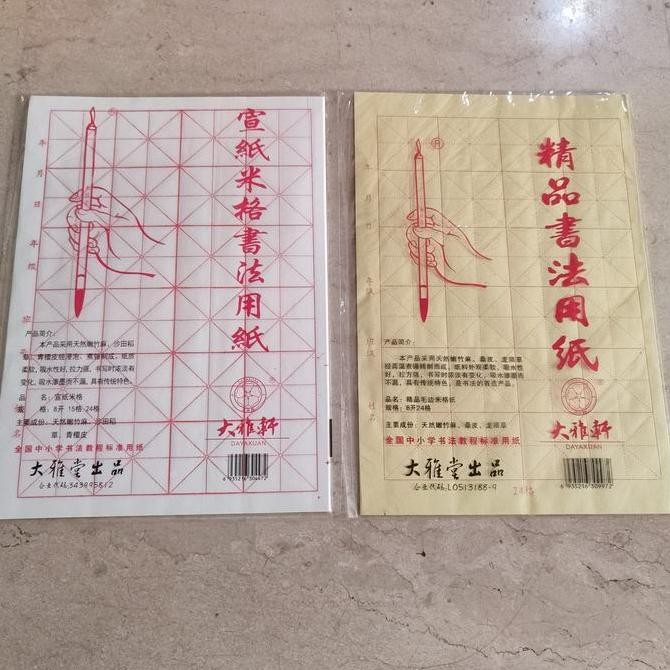 宣紙米格書法用紙
年 月 日
年 级
班
名
产品简介:
本产品采用天然嫩竹麻、沙田稻
草、青檀皮经浸泡、煮锤制成,纸质
柔软,吸水性好,拉力强,书写时浓淡有
变化,吸水渗墨而不漏,具有传统特色。
品 名:宣纸米格
规 格:8开 15格·24格
主要成份:天然嫩竹麻、沙田稻
草、青檀皮
全国中小学书法教程标准用纸
大雅堂出品
企业代码:343995812
大雅軒
DAYAXUAN
6 935216 309972
精品書法用紙
年
月
日
年级
班级
姓名
产品简介:
本产品采用天然嫩竹麻、桑皮、龙须草
经高温煮锤精制而成,纸料外观柔软、吸水性
好,拉力强,书写时浓淡有变化,吸水渗墨而
不漏,具有传统特色,是书法的首选产品。
品名:精品毛边米格纸
规格:8开24格
主要成份:天然嫩竹麻、桑皮、龙须草
全国中小学书法教程标准用纸
大雅堂出品
企业代码:L0513188-9
24格
大雅軒
DAYAXUAN
6 935216 309972